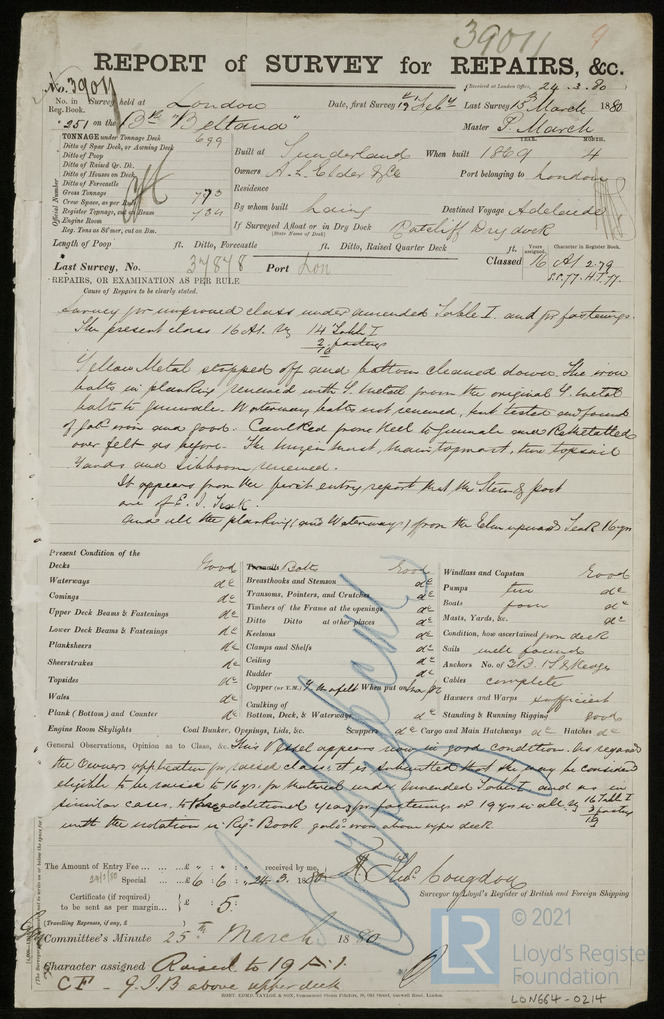 39011 9
REPORT of SURVEY for REPAIRS, &c.
No. 39011 (Received at London Office, 24.3.80
No. in Reg. Book. Survey held at London Date, first Survey 19th Feby Last Survey 15th March 1880
251 on the Bk "Beltana" Master P. March
TONNAGE under Tonnage Deck 699
Ditto of Spar Deck, or Awning Deck
Ditto of Poop
Ditto of Raised Qr. Dk.
Ditto of Houses on Deck
Ditto of Forecastle
Gross Tonnage 773
Crew Space, as per Rule
Register Tonnage, cut on Beam 734
Engine Room
Reg. Tons as St'mer, cut on Bm.
Official Number
Built at Sunderland When built YEAR. 1869 MONTH. 4
Owners A. L. Elder & Co Port belonging to London
Residence
By whom built Laing Destined Voyage Adelaide
If Surveyed Afloat or in Dry Dock Ratcliff Dry dock
(State Name of Dock)
Length of Poop ft. Ditto, Forecastle ft. Ditto, Raised Quarter Deck ft.
Years assigned. Character in Register Book.
Last Survey, No. 37878 Port Lon Classed 16 A1 2.79
S.S. 77. H.T. 77.
REPAIRS, OR EXAMINATION AS PER RULE
Cause of Repairs to be clearly stated.
Survey for improved class under amended Table I. and for fastenings.
The present class 16 A1. 14 Table I
2 fastngs
16
Yellow Metal stripped off and bottom cleaned down. The iron
bolts in planking renewed with Y. Metal from the original Y. Metal
bolts to gunwale. Waterway bolts not renewed, but tested and found
of Gal. iron and good. Caulked from keel to gunwale and Remetalled
over felt as before. The mizen mast, main topmast, two topsail
Yards and Jibboom renewed.
It appears from the first entry report that the Stem & post
are of E. I. Teak.
and all the planking (and Waterways) from the Elm upwards Teak 16 yrs
Present Condition of the
Decks Good
Waterways do
Comings do
Upper Deck Beams & Fastenings do
Lower Deck Beams & Fastenings do
Planksheers do
Sheerstrakes do
Topsides do
Wales do
Plank (Bottom) and Counter do
Engine Room Skylights Coal Bunker, Openings, Lids, &c. Scuppers do Cargo and Main Hatchways do Hatches do
Treenails Bolts Good
Breasthooks and Stemson do
Transoms, Pointers, and Crutches do
Timbers of the Frame at the openings do
Ditto Ditto at other places do
Keelsons do
Clamps and Shelfs do
Ceiling do
Rudder do
Copper (or Y.M.) When put on
Caulking of
Bottom, Deck, & Waterways do
Windlass and Capstan Good
Pumps two do
Boats four do
Masts, Yards, &c. do
Condition, how ascertained from deck
Sails well found
Anchors No. of 3 B. 1 S & Kedges
Cables complete
Hawsers and Warps sufficient
Standing & Running Rigging good
General Observations, Opinion as to Class, &c. This Vessel appears now in good condition. As regards
the Owners application for raised class, it is submitted that she may be considered
eligible to be raised to 16 yrs. for Material under Amended Table I. and as in
similar cases, to three additional years for fastenings or 19 yrs in all. 16 Table I
3 fastngs
19
with the notation in Reg. Book galv. iron above upper deck.
The Amount of Entry Fee ... £ " : " : " received by me,
24/3/80 Special ... £ 6 : 6 : " 24.3.1880
Certificate (if required) to be sent as per margin... £ : 5 :
(Travelling Expenses, if any, £
Thos. Congdon
Surveyor to Lloyd's Register of British and Foreign Shipping
Committee's Minute 25th March 1880
Character assigned Raised to 19 A.1.
CF - G.I.B above upper deck
ROBT. EDMD. TAYLOR & SON, Consecutive Steam Printers, 19, Old Street, Goswell Road, London.
© 2021
LR
Lloyd's Register
Foundation
LON664-0214